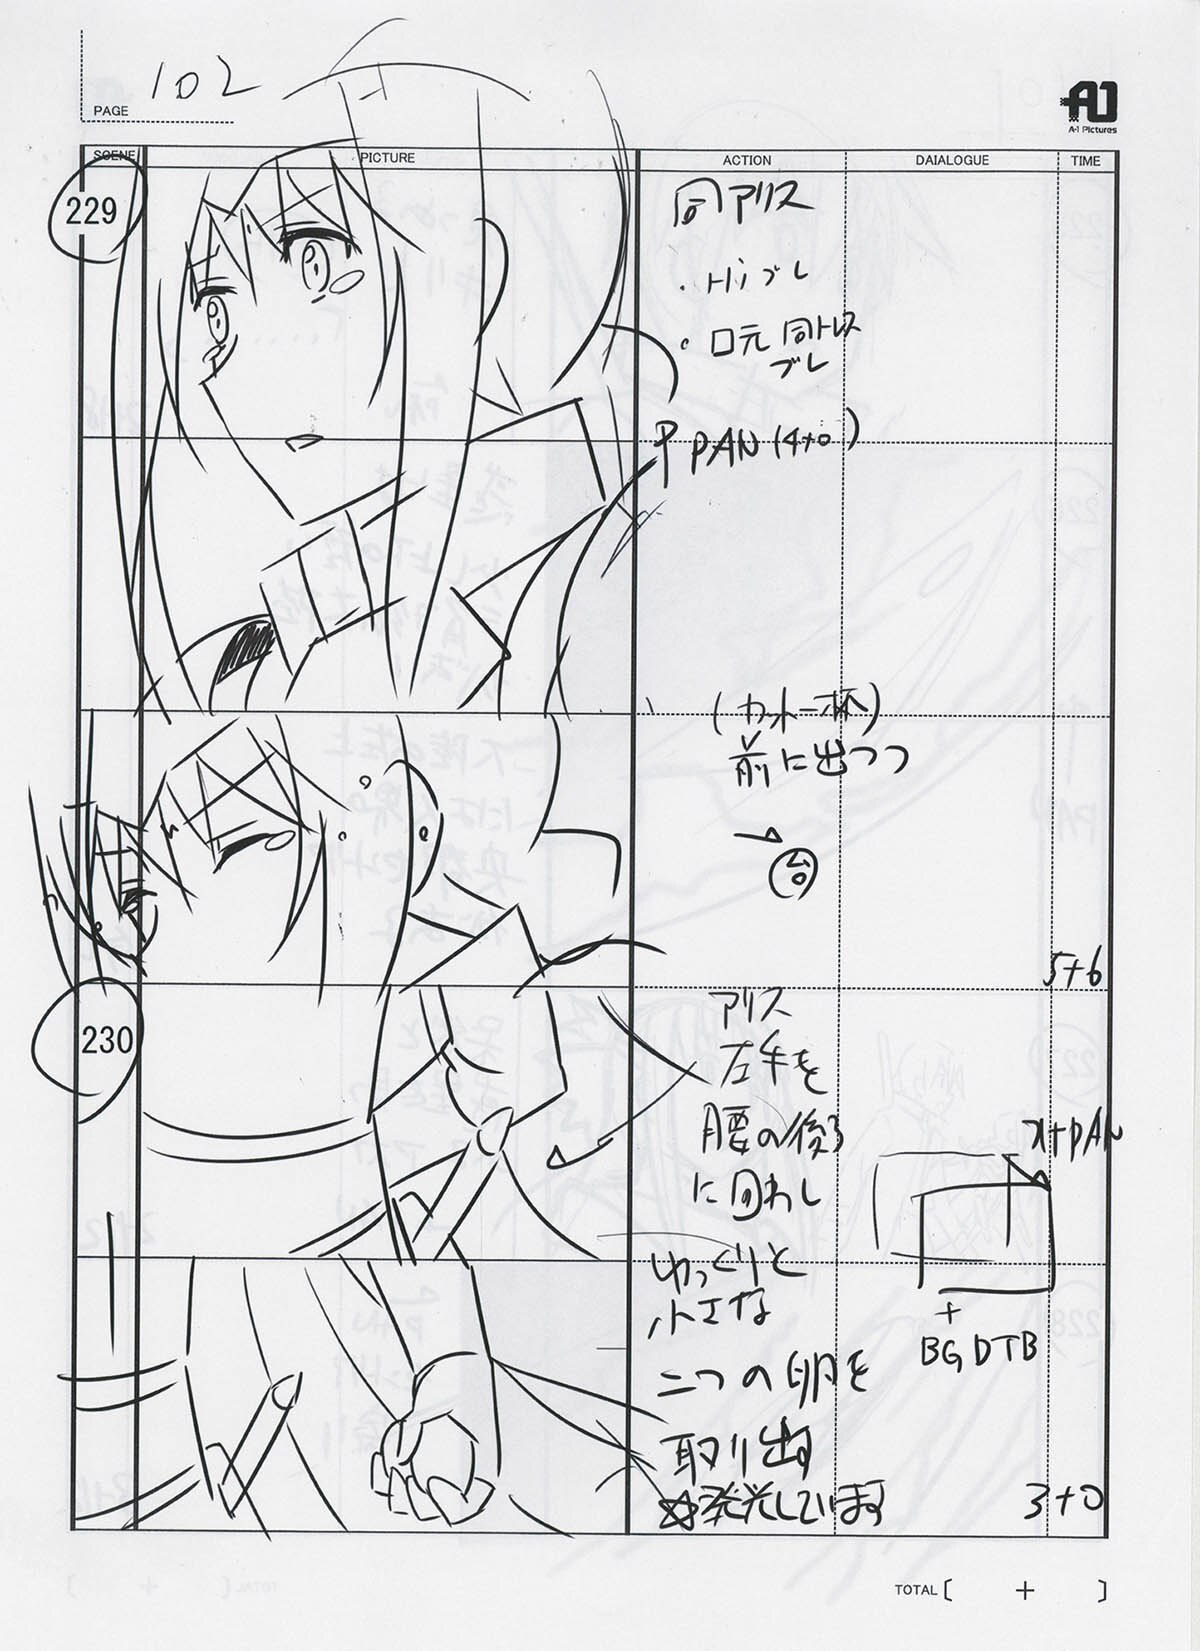 PAGE 102
A-1 Pictures
SCENE PICTURE ACTION DAIALOGUE TIME
229
同アリス
・口元 同トレス
ブレ
PAN (4+0)
(カット一杯)
前に出つつ
台
5+6
230
アリス
左手を
腰の後ろ
に回わし
ゆっくりと
小さな
二つの卵を
取り出す
☆発光しています
PAN
+
BG DTB
3+0
TOTAL [ + ]